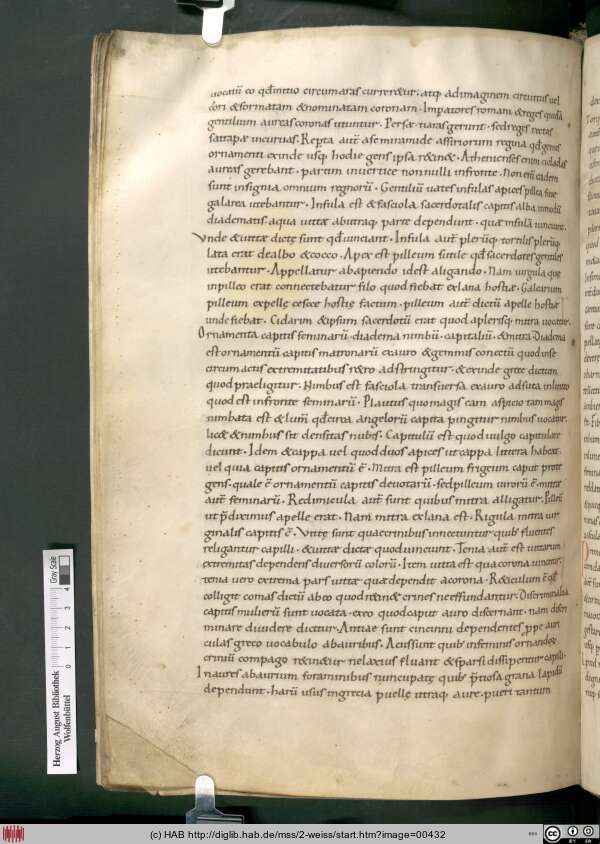 uocatū eo qđ initio circum aras curreret̄ur · atq; ad imaginem circuitus uel
chori & formatam & nominatam coronam · Imperatores romani & reges quidā
gentilium aureas coronas utuntur · Persae tiaras gerunt · sed reges rectas
satrapae incuruas · Repta aut̄ a semiramide assiriorum regina qđ genus
ornamenti exinde usq; hodie gens ipsa retinet · Athenienses enim cicadas
aureas gerebant · partim in uertice non nulli in fronte · Non enī eadem
sunt insignia omnium regnorū · Gentiliū uates infulas apices pillea siue
galarea utebantur · Infula est & fasciola sacerdotalis capitis alba in modū
diadematis a qua uittae ab utraq; parte dependunt · quae infulā uinciunt ·
Unde & uittae dictę sunt qđ uinciant · Infula aut̄ plerūq; tortilis plerūq;
lata erat de albo & cocco · Apex est pilleum sutile qđ sacerdotes gentiles
utebantur · Appellatur ab apiendo id est aligando · Nam uirgula quę
in pilleo erat connectebatur filo quod fiebat ex lana hostiae · Galearium
pilleum ex pelle cęsę hostię factum · pilleum aut̄ dictū a pelle hostiae
unde fiebat · Cidarim & ipsum sacerdotū erat quod a plerisq; mitra uocatur ·
Ornamenta capitis feminarū diadema nimbū · capitulū & mitra · Diadema
est ornamentū capitis matronarū ex auro & gemmis contextū quod in se
circum actis extremitatibus retro adstringitur · & exinde grece dictum
quod praeligitur · Nimbus est fasciola transuersa ex auro adsuta in linteo
quod est in fronte feminarū · Plautus quo magis eam aspicio tam magis
nimbata est & lum̄ qđ circa angelorū capita pingitur nimbus uocatur ·
licet & nimbus sit densitas nubis · Capitulū est quod uulgo capitulare
dicunt · Idem & cappa uel quod duos apices ut cappa littera habeat
uel quia capitis ornamentū ē · Mitra est pilleum frigeum caput prote
gens · quale ē ornamentū capitis deuotarū · sed pilleum uirorū ē · mitrae
aut̄ feminarū · Redimicula aut̄ sunt quibus mitra alligatur · Pilleū
ut p̄diximus a pelle erat · Nam mitra ex lana est · Rigula mitra uir
ginalis capitis ē · Vittę sunt quae crinibus innectuntur quib; fluentes
religantur capilli · & uittae dictae quod uinciunt · Tenia aut̄ est uittarum
extremitas dependens diuersorū colorū · Item uitta est qua corona uincitur ·
tenia uero extrema pars uittae quae dependit a corona · Reticulum ē qđ
colligit comas dictū ab eo quod retinet crines ne effundantur · Discriminalia
capitis mulierū sunt uocata · ex eo quod caput auro discernant · nam discri
minare diuidere dicitur · Antiae sunt cincinni dependentes ꝓpe auri
culas greco uocabulo ab auribus · Acus sunt quib; in feminis ornandę
criniū compago retinetur ne laxius fluant & sparsi dissipentur capilli ·
Inaures ab aurium foraminibus nuncupatę quib; p̄tiosa grana lapidū
dependunt · harū usus in grecia puellę utraq; aure · pueri tantum
Herzog August Bibliothek
Wolfenbüttel
0 1 2 3 4
Gray Scale
(c) HAB http://diglib.hab.de/mss/2-weiss/start.htm?image=00432
BY SA